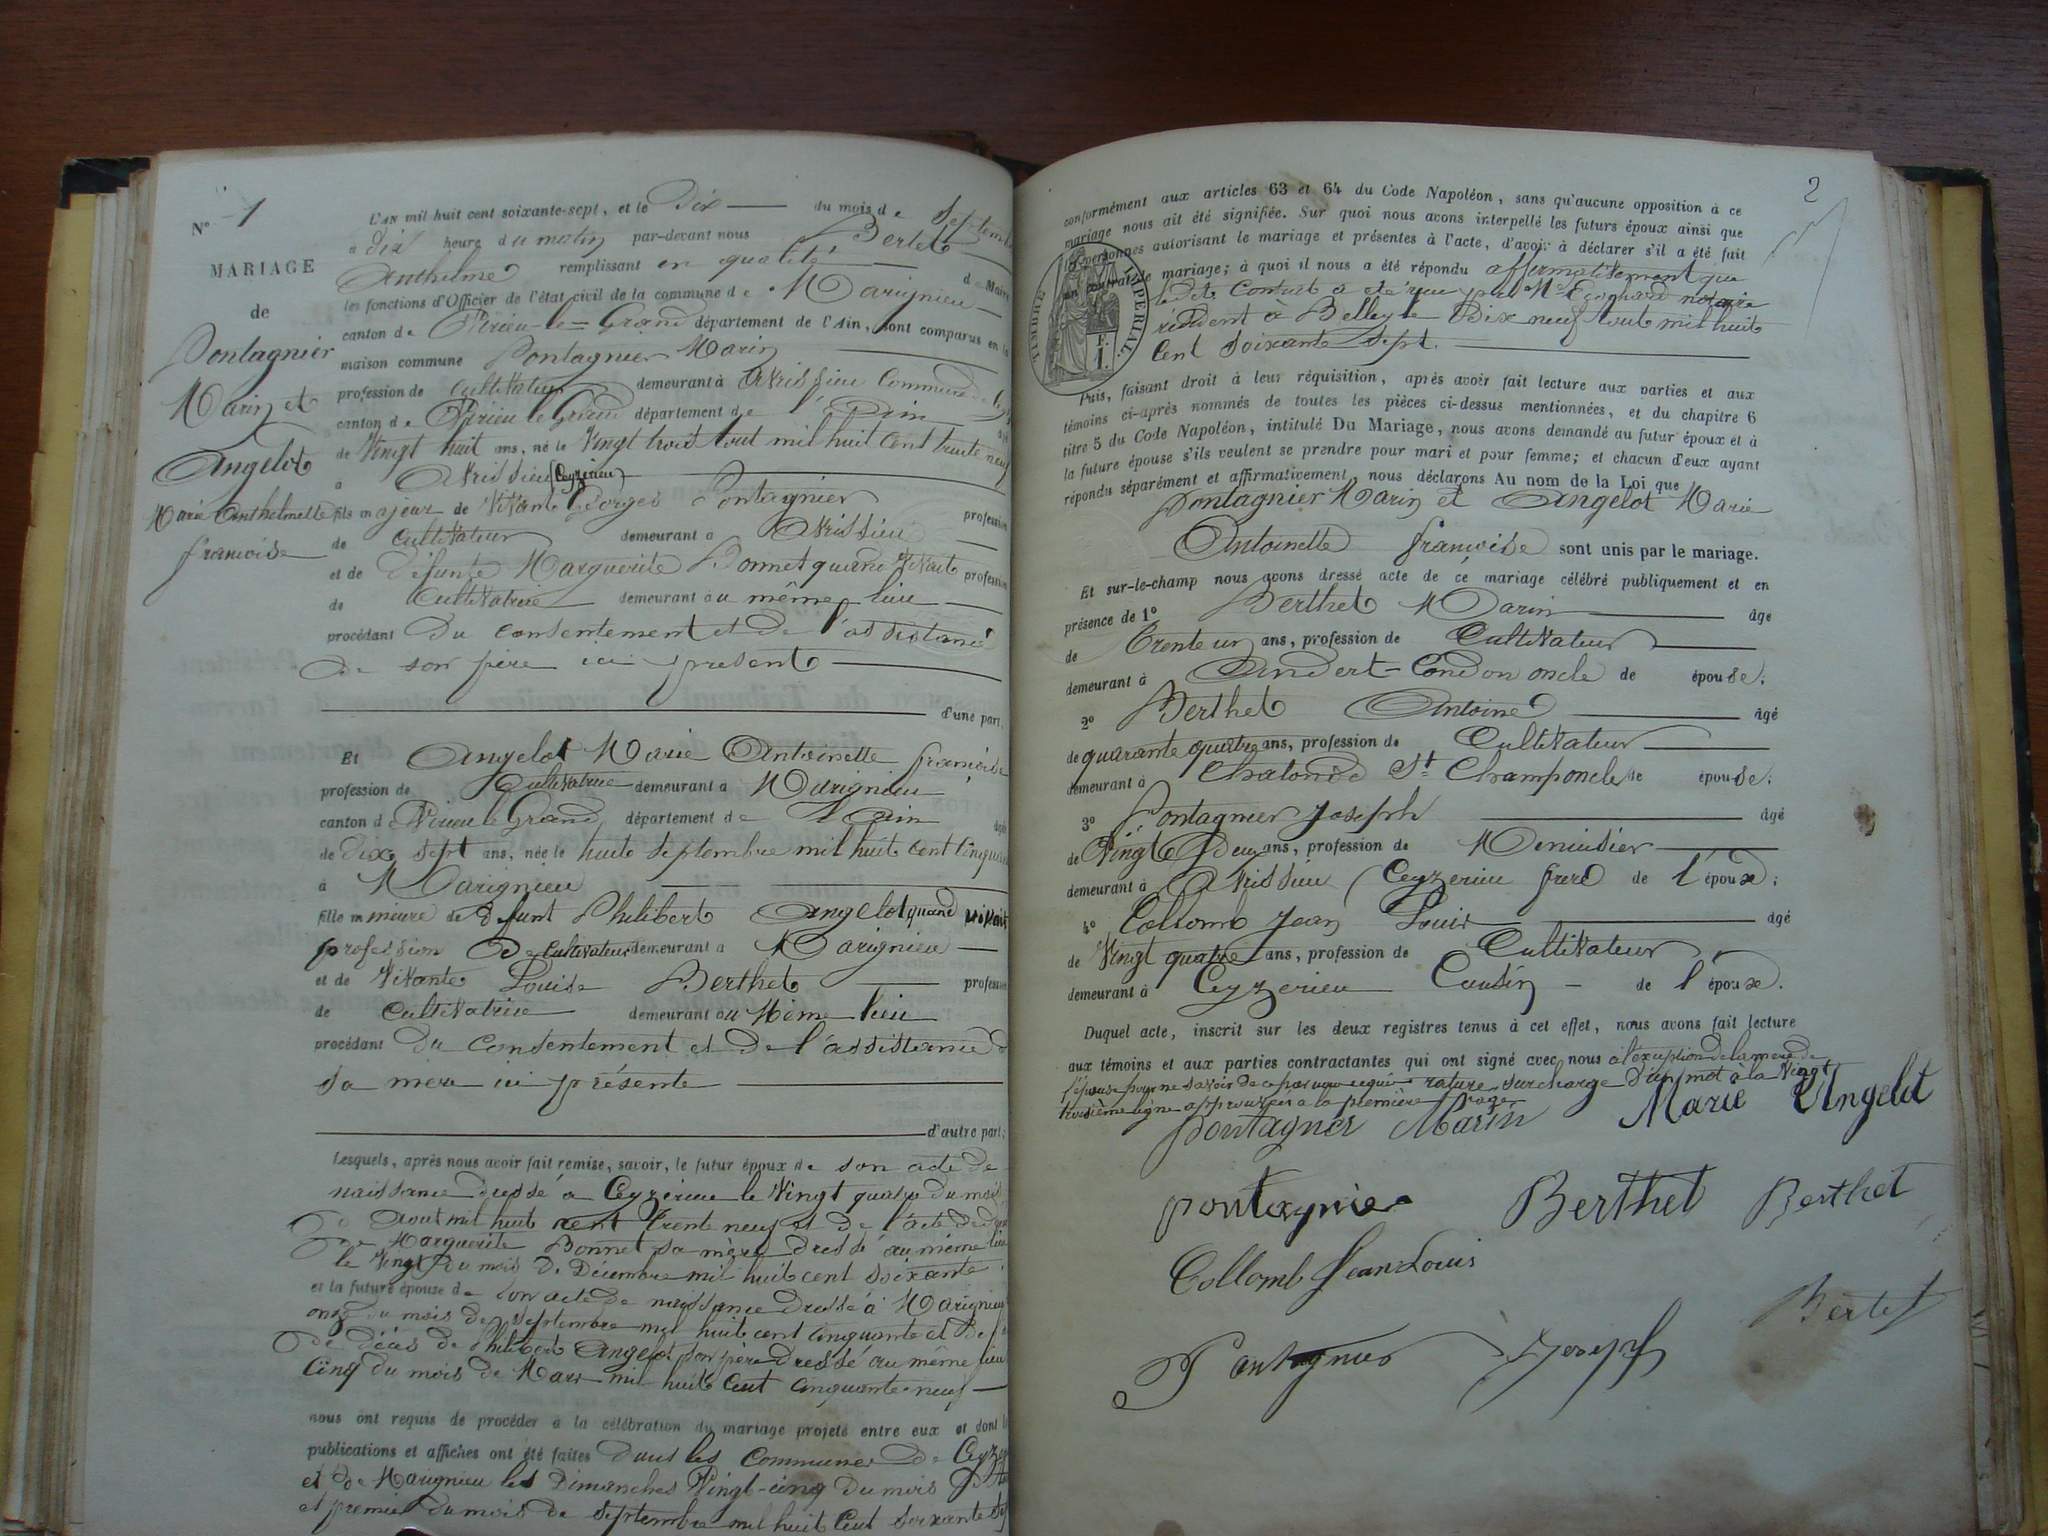 N° 1
MARIAGE
de
Pontagnier
Marin et
Angelot
Marie Anthelmette
françoise
L'AN mil huit cent soixante-sept, et le Dix du mois de Septembre
à dix heure du matin par-devant nous Bertet
Anthelme remplissant en qualité de Maire
les fonctions d'Officier de l'état civil de la commune de Marignieu
canton de Virieu-le-Grand département de l'Ain, sont comparus en la
maison commune Pontagnier Marin
profession de Cultivateur demeurant à Avrissieu Commune de
canton de Virieu le Grand département de l'Ain âgé
de Vingt huit ans, né le Vingt trois aout mil huit cent trente neuf
à Avrissieu (Ceyzérieu)
fils majeur de Vivant Georges Pontagnier profession
de Cultivateur demeurant à Avrissieu
et de défunte Marguerite Bonnet quand Vivait profession
de Cultivatrice demeurant au même lieu
procédant Du consentement et de l'assistance
de son père ici present
d'une part.
Et Angelot Marie Antoinette françoise
profession de Cultivatrice demeurant à Marignieu
canton de Virieu le Grand département de l'Ain âgée
de dix sept ans, née le huit Septembre mil huit cent Cinquante
à Marignieu
fille mineure de défunt Philibert Angelot quand vivait
profession de Cultivateur demeurant à Marignieu
et de Vivante Louise Berthet profession
de Cultivatrice demeurant au Même lieu
procédant Du Consentement et de l'assistance de
sa mere ici présente
d'autre part;
Lesquels, après nous avoir fait remise, savoir, le futur époux de son acte de
naissance dressé à Ceyzerieu le Vingt quatre du mois
d'Aout mil huit cent trente neuf et de l'acte de
de Marguerite Bonnet sa mère dressé au même lieu
le Vingt du mois de Décembre mil huit cent soixante
et la future épouse de Son acte de naissance dressé à Marignieu
onze du mois de Septembre mil huit cent cinquante et de
de décès de Philibert Angelot son père dressé au même lieu
Cinq du mois de Mars mil huit Cent Cinquante-neuf
nous ont requis de procéder à la célébration du mariage projeté entre eux et dont les
publications et affiches ont été faites dans les Communes de
et de Marignieu les Dimanches Vingt-cinq du mois
et premier du mois de Septembre mil huit Cent soixante sept
2
conformément aux articles 63 et 64 du Code Napoléon, sans qu'aucune opposition à ce
mariage nous ait été signifiée. Sur quoi nous avons interpellé les futurs époux ainsi que
les personnes autorisant le mariage et présentes à l'acte, d'avoir à déclarer s'il a été fait
un contrat de mariage; à quoi il nous a été répondu affirmativement que
le dit Contrat a été reçu par Me notaire
résident à Belley le Dix neuf aout mil huit
Cent Soixante Sept.
TIMBRE IMPERIAL
F. 1.
Puis, faisant droit à leur réquisition, après avoir fait lecture aux parties et aux
témoins ci-après nommés de toutes les pièces ci-dessus mentionnées, et du chapitre 6
titre 5 du Code Napoléon, intitulé Du Mariage, nous avons demandé au futur époux et à
la future épouse s'ils veulent se prendre pour mari et pour femme; et chacun d'eux ayant
répondu séparément et affirmativement, nous déclarons Au nom de la Loi que
Pontagnier Marin et Angelot Marie
Antoinette françoise sont unis par le mariage.
Et sur-le-champ nous avons dressé acte de ce mariage célébré publiquement et en
présence de 1° Berthet Marin âgé
de Trente un ans, profession de Cultivateur
demeurant à Andert-Condon oncle de épouse;
2° Berthet Antoine âgé
de quarante quatre ans, profession de Cultivateur
demeurant à St Champ oncle de épouse;
3° Pontagnier Joseph âgé
de Vingt Deux ans, profession de Menuisier
demeurant à Avrissieu (Ceyzerieu frere de l'époux;
4° Collomb Jean Louis âgé
de Vingt quatre ans, profession de Cultivateur
demeurant à Ceyzerieu Cousin de l'époux.
Duquel acte, inscrit sur les deux registres tenus à cet effet, nous avons fait lecture
aux témoins et aux parties contractantes qui ont signé avec nous à l'exception de la mere de
l'épouse pour ne savoir de ce par nous requis rature surcharge d'un mot à la Vingt
troisième ligne approuvés a la première page
pontagnier Marin Marie Angelot
pontagnier Berthet Berthet
Collomb Jean Louis
Bertet
Pontagnier Joseph